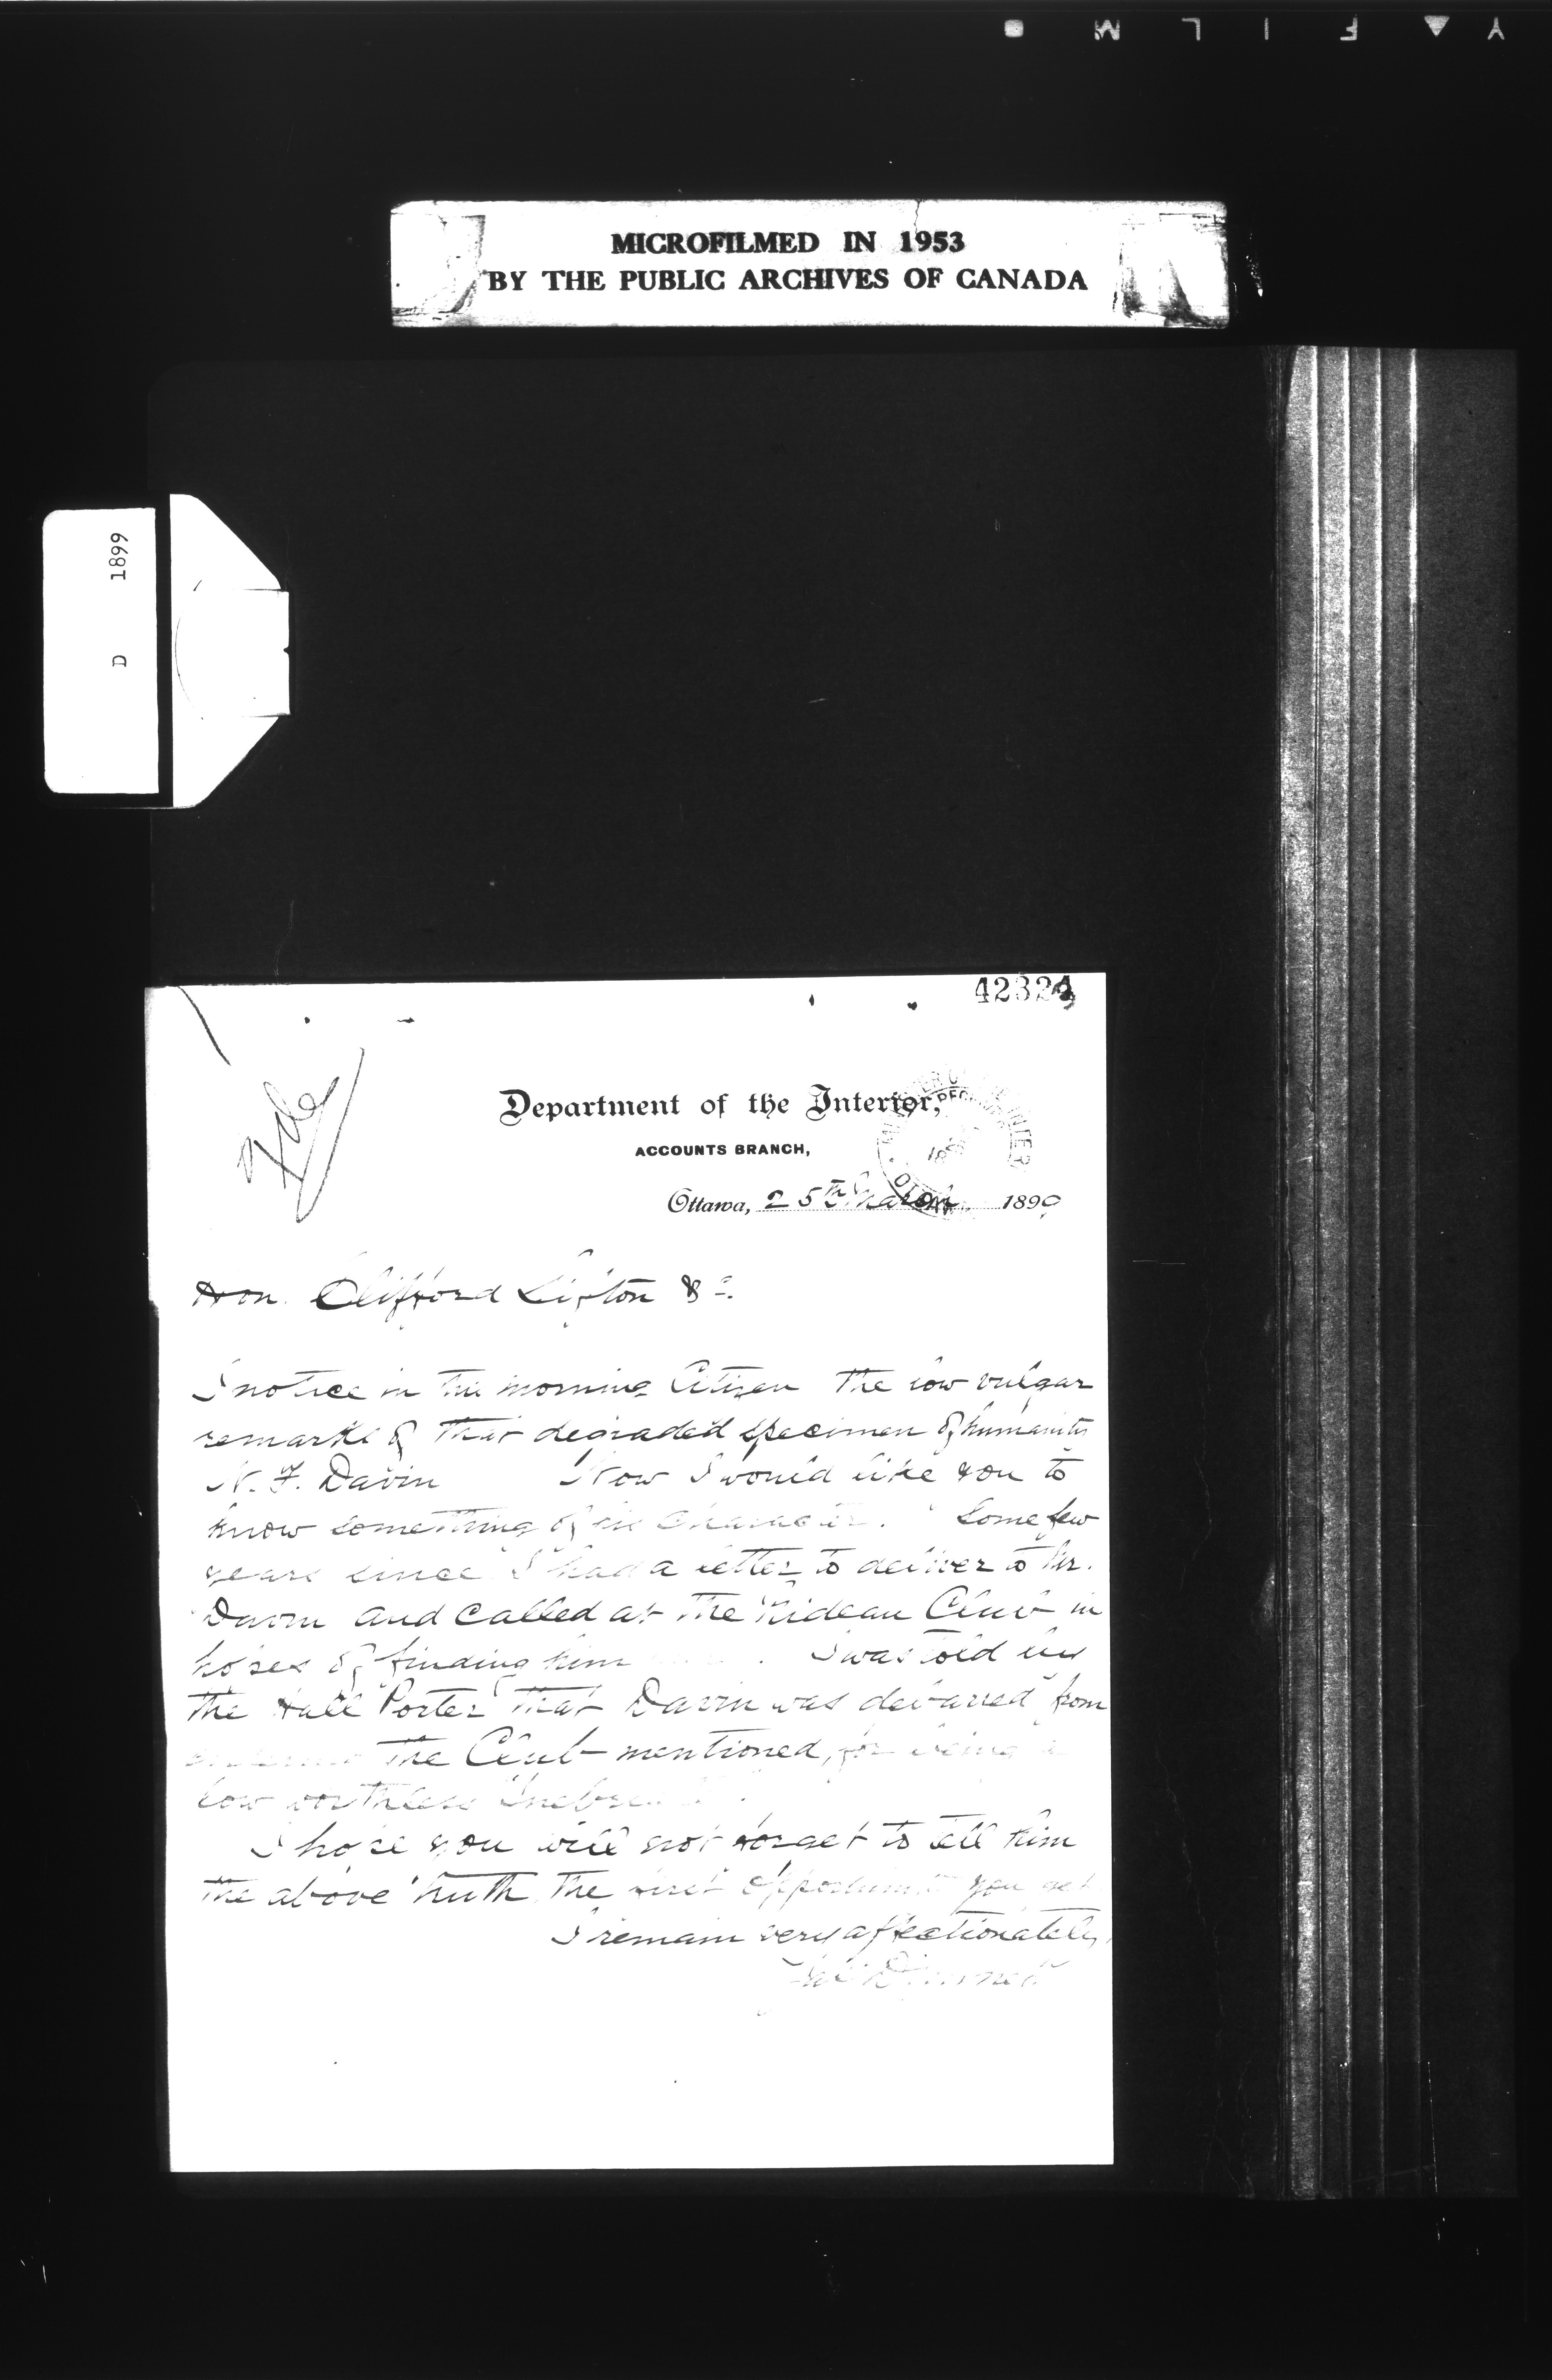 MICROFILMED IN 1953
BY THE PUBLIC ARCHIVES OF CANADA
D 1899
File
Department of the Interior,
ACCOUNTS BRANCH,
Ottawa, 25th March 1899
Hon. Clifford Sifton &c.
I notice in the morning Citizen the low vulgar
remarks of that degraded specimen of humanity
N. F. Davin Now I would like you to
know something of his character. Some few
years since I had a letter to deliver to Mr.
Davin and called at the Rideau Club in
hopes of finding him I was told by
the Hall Porter that Davin was debarred from
the Club mentioned, for being a
low worthless
I hope you will not forget to tell him
the above truth the first opportunity you get
I remain very affectionately